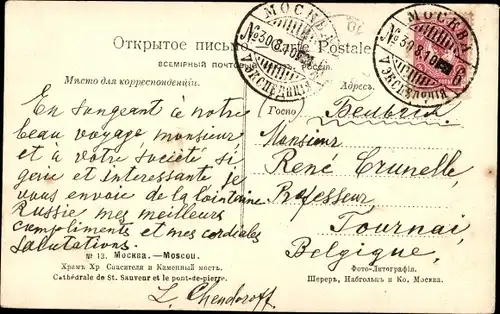 МОСКВА
№30.8.10
7 ЭКСПЕДИЦІЯ
МОСКВА
№30.8.10
7 ЭКСПЕДИЦІЯ
Открытое письмо. Carte Postale
ВСЕМІРНЫЙ ПОЧТОВ
РОССІЯ.
Мѣсто для корреспонденціи.
Адресъ.
En songeant à notre
beau voyage monsieur
et à votre société si
gaie et interessante je
vous envoie de la lointaine
Russie mes meilleurs
compliments et mes cordiales
salutations.
L. Chendoroff
Госпо
Monsieur
René Crunelle,
Professeur,
Tournai,
Belgique,
№ 13. Москва.—Moscou.
Храмъ Хр Спасителя и Каменный мостъ.
Cathédrale de St. Sauveur et le pont-de-pierre.
Фото-Литографія.
Шереръ, Набгольцъ и Ко. Москва.